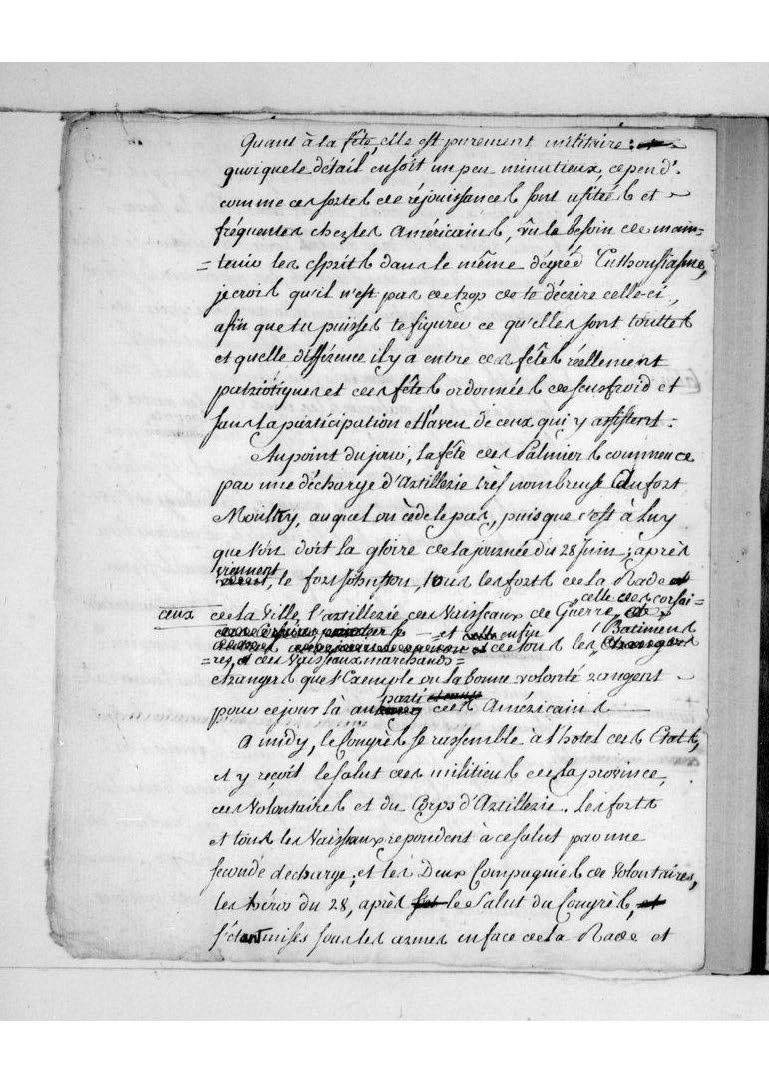 Quant à la fête, elle est purement militaire:
quoique le détail en soit un peu minutieux, cepend.t
comme ces sortes de réjouissances sont usitées et
fréquentes chez les Américains, vû le besoin de main=
=tenir les esprits dans le même dégré d'Enthousiasme,
je crois qu'il n'est pas de trop de te décrire celle-ci,
afin que tu puisses te figurer ce qu'elles sont touttes
et quelle différence il y a entre ces fêtes réellement
patriotiques et ces fêtes ordonnées de sens froid et
sans la participation et l'aveu de ceux qui y assistent.
Au point du jour, la fête des Palmiers commence
par une décharge d'artillerie très nombreuse du fort
Moultry, auquel on cède le pas, puisque c'est à luy
que l'on doit la gloire de la journée du 28 Juin; après
viennent
le fort Johnston, tous les forts de la Rade
celle des corsai=
ceux de la Ville, l'artillerie des Vaisseaux de Guerre,
et enfin Batimens
de tous les
=res, et des Vaisseaux marchands=
étrangers que l'Exemple ou la bonne volonté rangent
parti
pour ce jour là au des Américains
A midy, le Congrès se rassemble à l'hotel des Etats,
et y reçoit le salut des milices de la province,
des Volontaires et du Corps d'Artillerie. Les forts
et tous les Vaisseaux repondent à ce salut par une
seconde decharge; et les Deux Compagnies de Volontaires,
les héros du 28, après le Salut du Congrès,
s'étant mises sous les armes en face de la Rade et